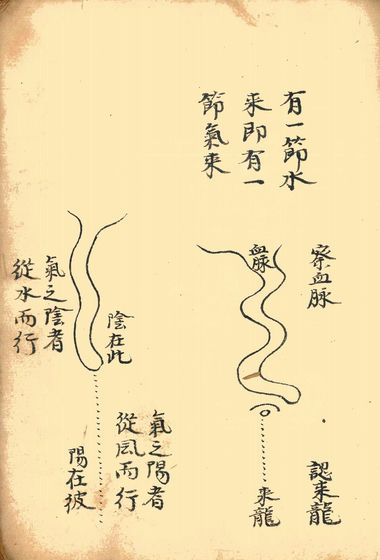 有一節水
來即有一
節氣來
察血脉
認來龍
血脉
來龍
氣之陽者
從风而行
陽在彼
陰在此
氣之陰者
從水而行